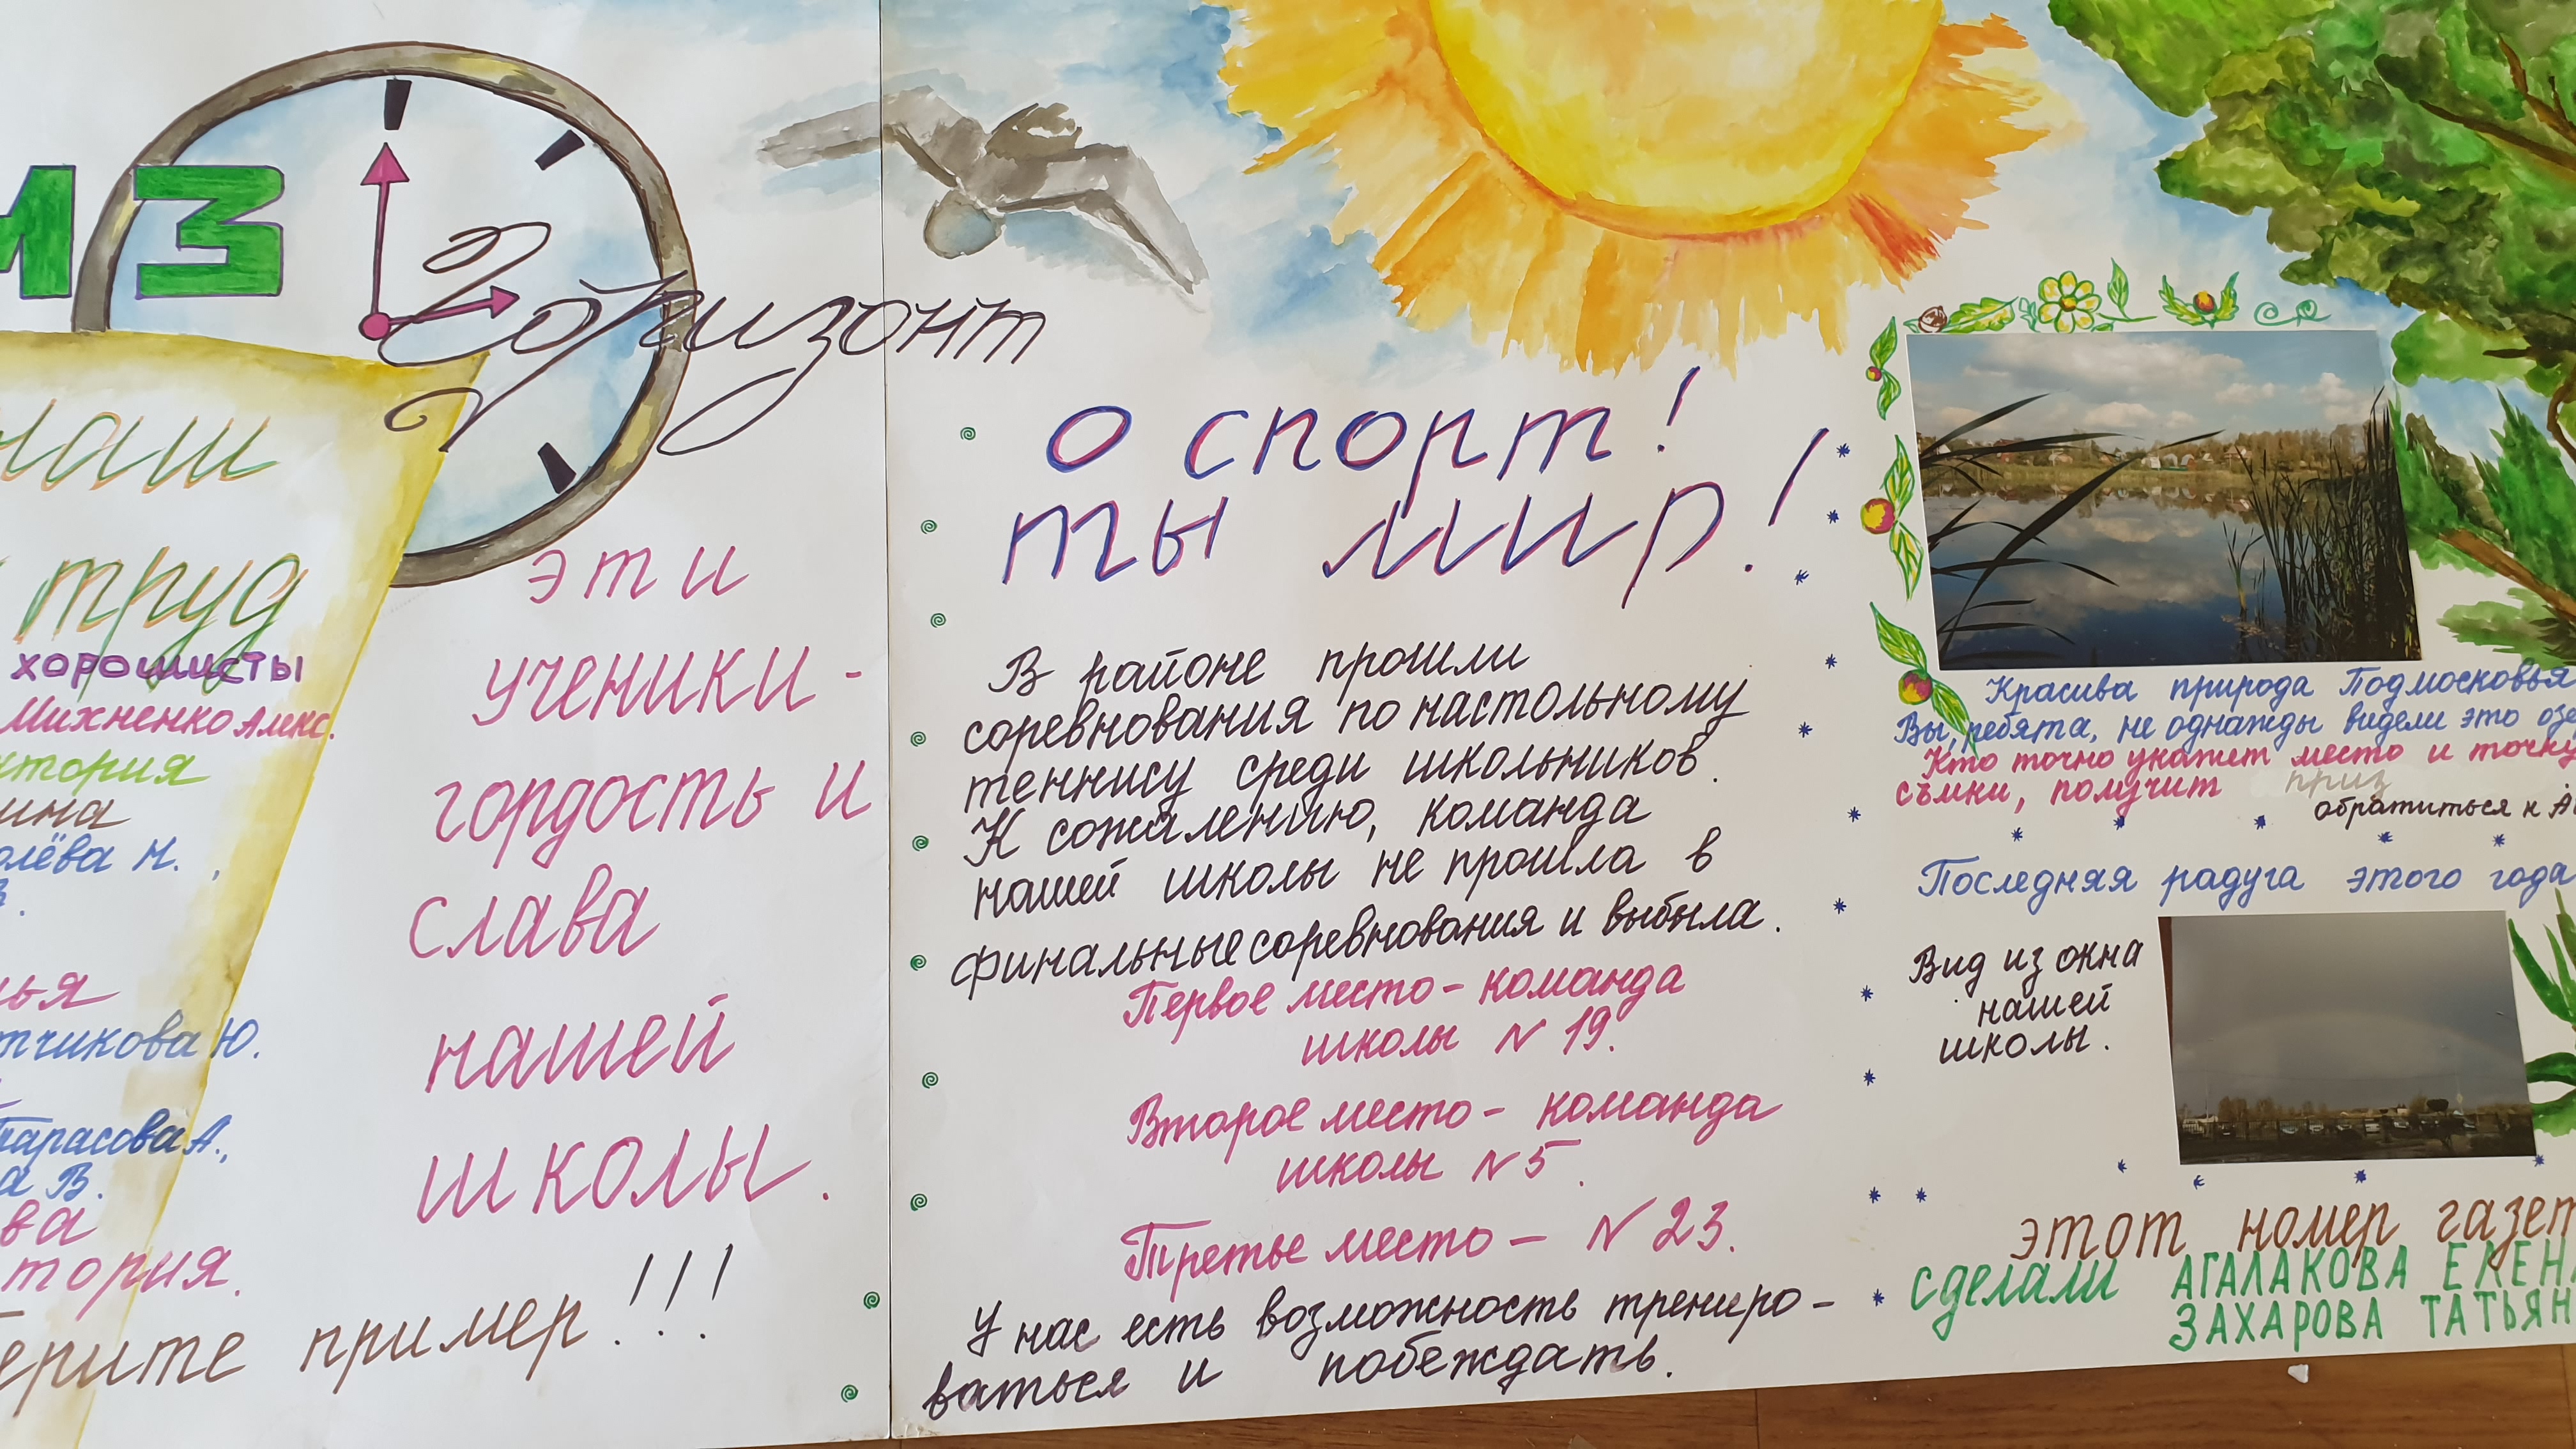 МЗ
Горизонт
наш
труд
хорошисты
Михненко Алекс.
тория
ина
олёва Н.,
В.
ья
тчикова Ю.
Тарасова А.,
а В.
ва
тория.
ерите пример!!!
эти
ученики -
гордость и
слава
нашей
школы.
О спорт!
ты мир!
В районе прошли
соревнования по настольному
теннису среди школьников.
К сожалению, команда
нашей школы не прошла в
финальные соревнования и выбыла.
Первое место - команда
школы N 19.
Второе место - команда
школы N 5.
Третье место - N 23.
У нас есть возможность трениро-
ваться и побеждать.
Красива природа Подмосковья
Вы, ребята, не однажды видели это озе
Кто точно укажет место и точку
съмки, получит приз
обратиться к А
Последняя радуга этого года
Вид из окна
нашей
школы.
этот номер газет
сделали АГАЛАКОВА ЕЛЕН
ЗАХАРОВА ТАТЬЯН